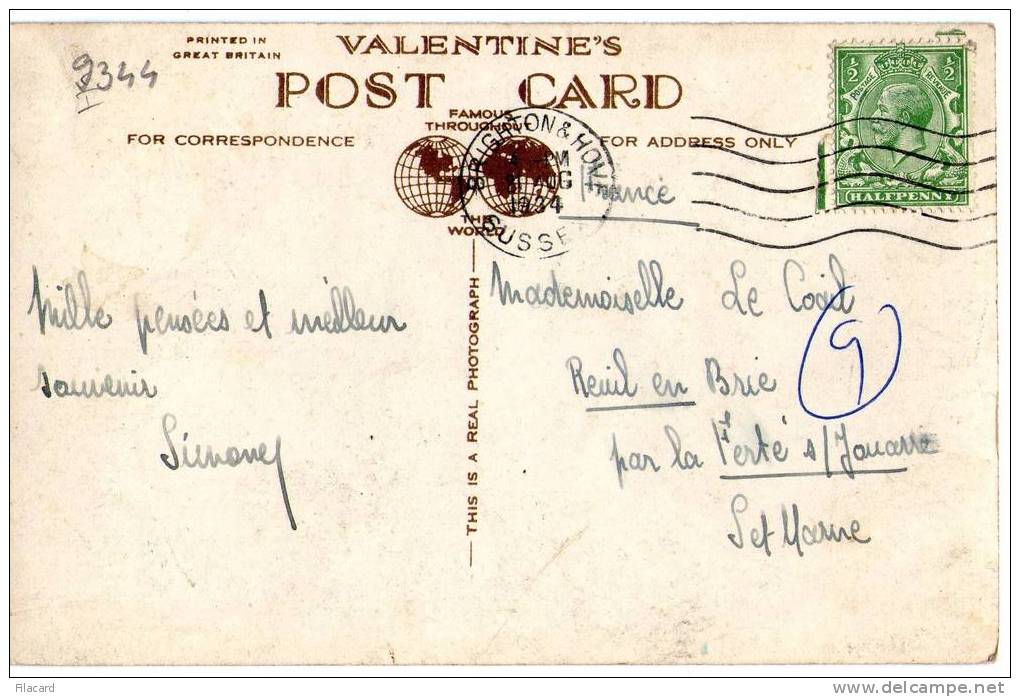 PRINTED IN
GREAT BRITAIN
VALENTINE'S
POST CARD
9344
FAMOUS
THROUGHOUT
FOR CORRESPONDENCE
FOR ADDRESS ONLY
THE
WORLD
BRIGHTON & HOVE
PM
AUG
1934
SUSSEX
½ ½
POSTAGE REVENUE
HALFPENNY
France
Mille pensées et meilleur
souvenir
THIS IS A REAL PHOTOGRAPH
Mademoiselle Le
Reuil en Brie
9
par la Ferté s/Jouarre
Set Marne
Filacard
www.delcampe.net